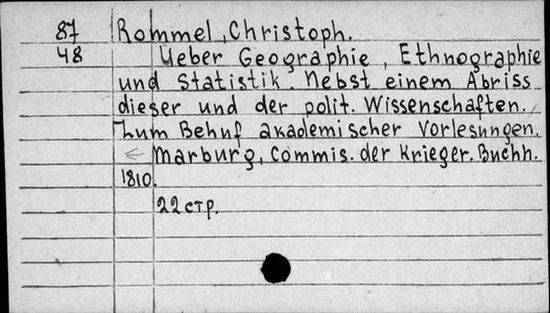 87 Rommel, Christoph.
48 Ueber Geographie, Ethnographie
und Statistik. Nebst einem Abriss
dieser und der polit. Wissenschaften.
Zum Behuf akademischer Vorlesungen.
← Marburg, Commis. der Krieger. Buchh.
1810.
22 стр.